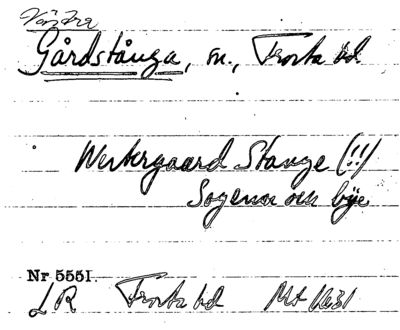 Västra
Gårdstånga, sn., Frosta hd
Westergaard Stange (!!)
Sogener och bÿe
Nr 5551.
LR Frosta hd Mt 1631